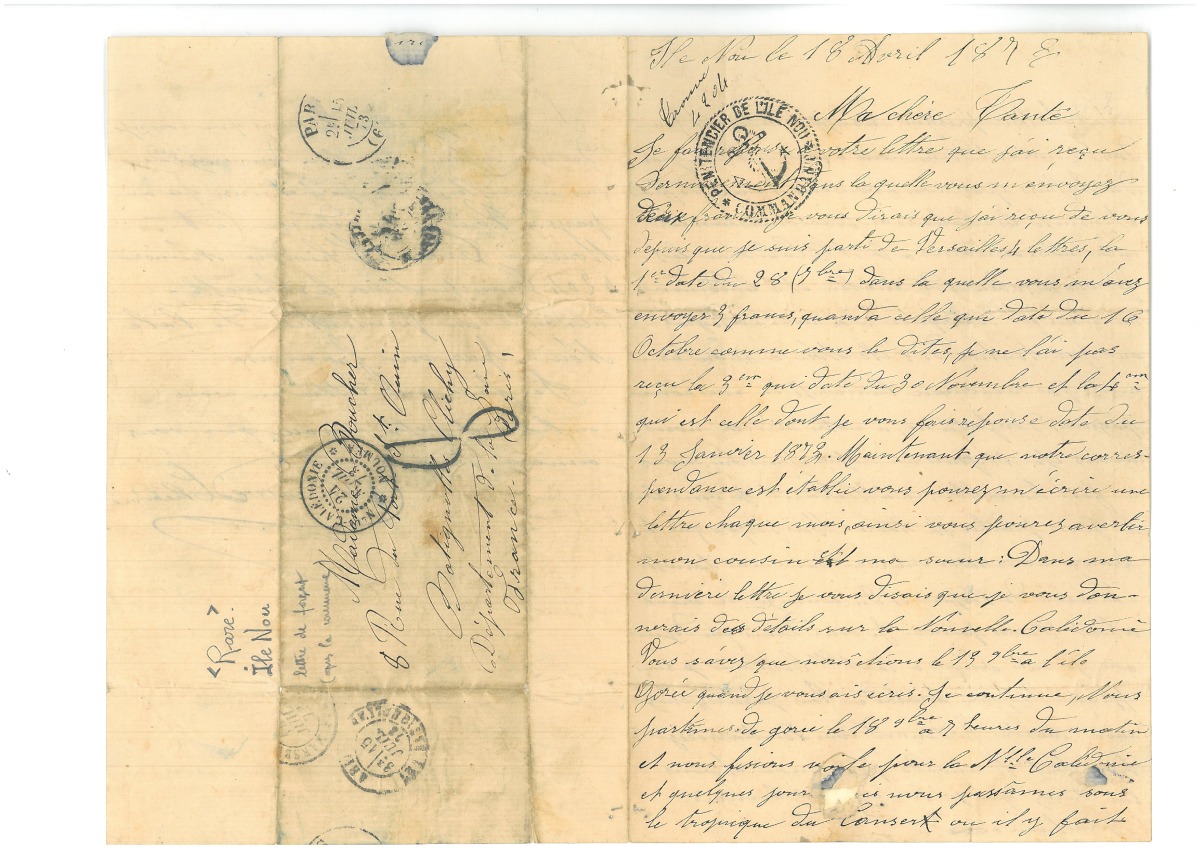 Ile Nou le 18 Avril 1873
4204
PENITENCIER DE L'ILE NOU
COMMANDANT
Ma chère Tante
Je fais votre lettre que j'ai reçu
dans la quelle vous m'envoyez
deux je vous dirais que j'ai reçu de vous
depuis que je suis parti de Versailles 4 lettres, la
1er date du 28 (7bre) dans la quelle vous m'avez
envoyer 3 francs, quand a celle qui date du 16
Octobre comme vous le dites, je ne l'ai pas
reçu la 3em qui date du 30 Novembre et la 4em
qui est celle dont je vous fais réponse date du
13 Janvier 1873. Maintenant que notre corres-
pendance est etablie vous pourez m'écrire une
lettre chaque mois, ainsi vous pourez avertir
mon cousin et ma sœur : Dans ma
derniere lettre je vous disais que je vous don-
nerais des détails sur la Nouvelle-Calédonie
Vous savez que nous étions le 13 9bre a l'ile
Gorée quand je vous ais écris. Je continue, Nous
partimes de gorée le 18 9bre a 7 heures du matin
et nous fisions voile pour la Nlle Calédonie
et quelques jour nous passames sous
le tropique du Canser ou il y fait
Madame Boucher
8 Rue du Port St Ouin
Batignolle Clichy
Département de la
France
PAR
15
JUIL
73
Nlle CALEDONIE
NOUMEA
lettre de forçat
(après la commune)
<Rare>
Île Nou
15
JUIL